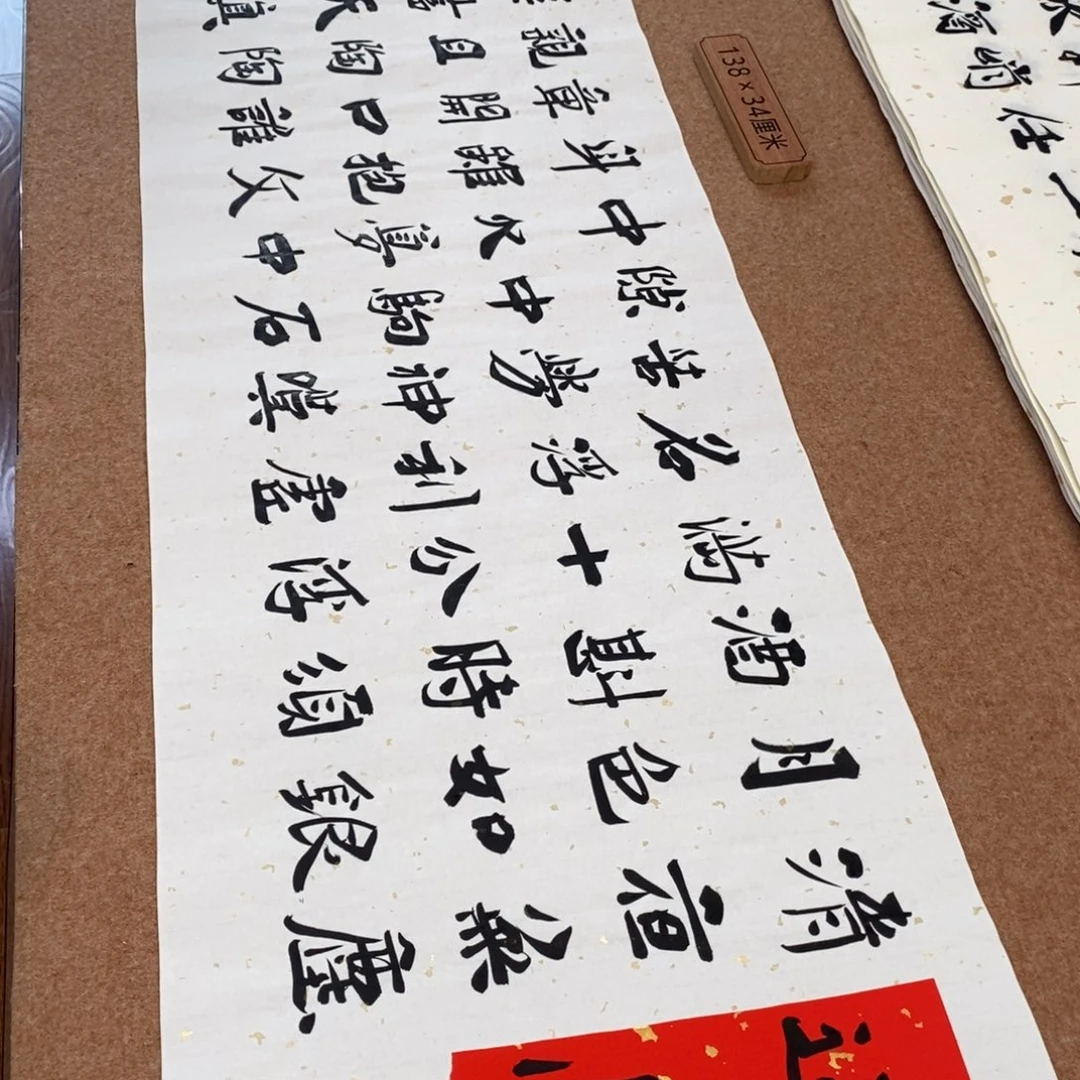 清夜無塵
月色如銀
酒斟時須
滿十分浮
名浮利虛
苦勞神嘆
隙中駒石
中火夢中
身雖抱文
章開口誰
親且陶陶
138×34厘米
任
一